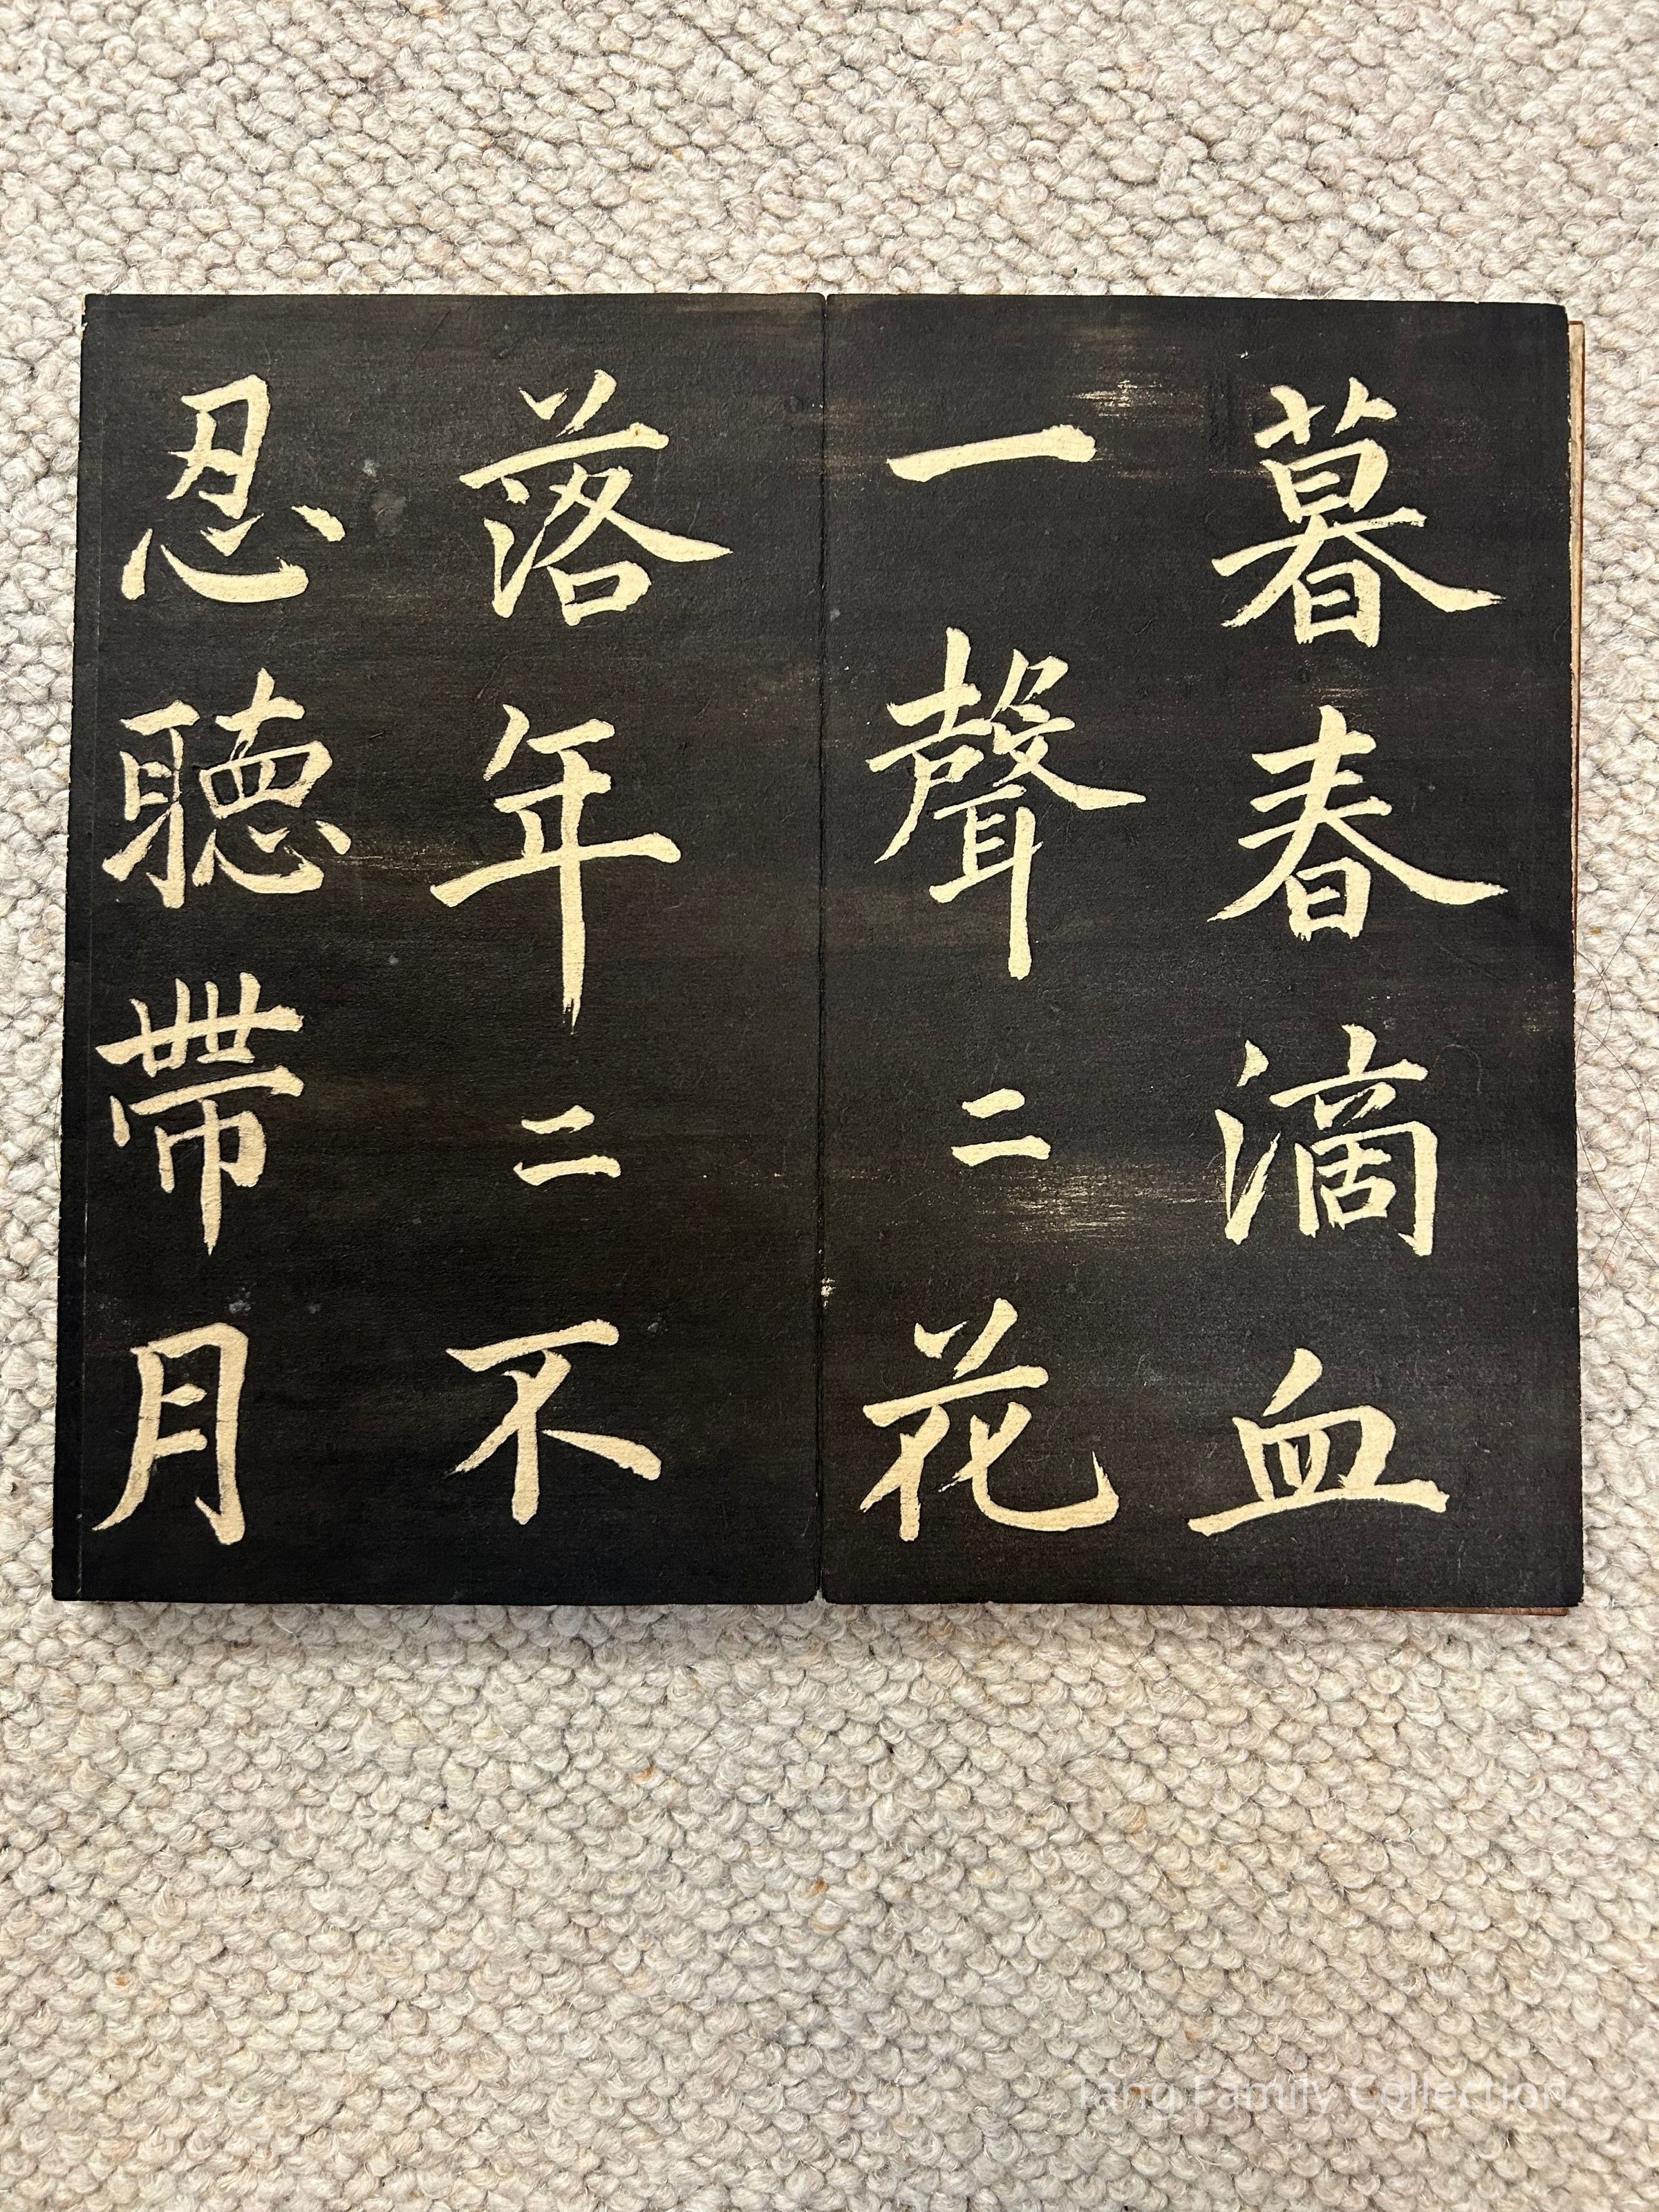 暮春滴血
一聲二花
落年二不
忍聽帶月
Tang Family Collection